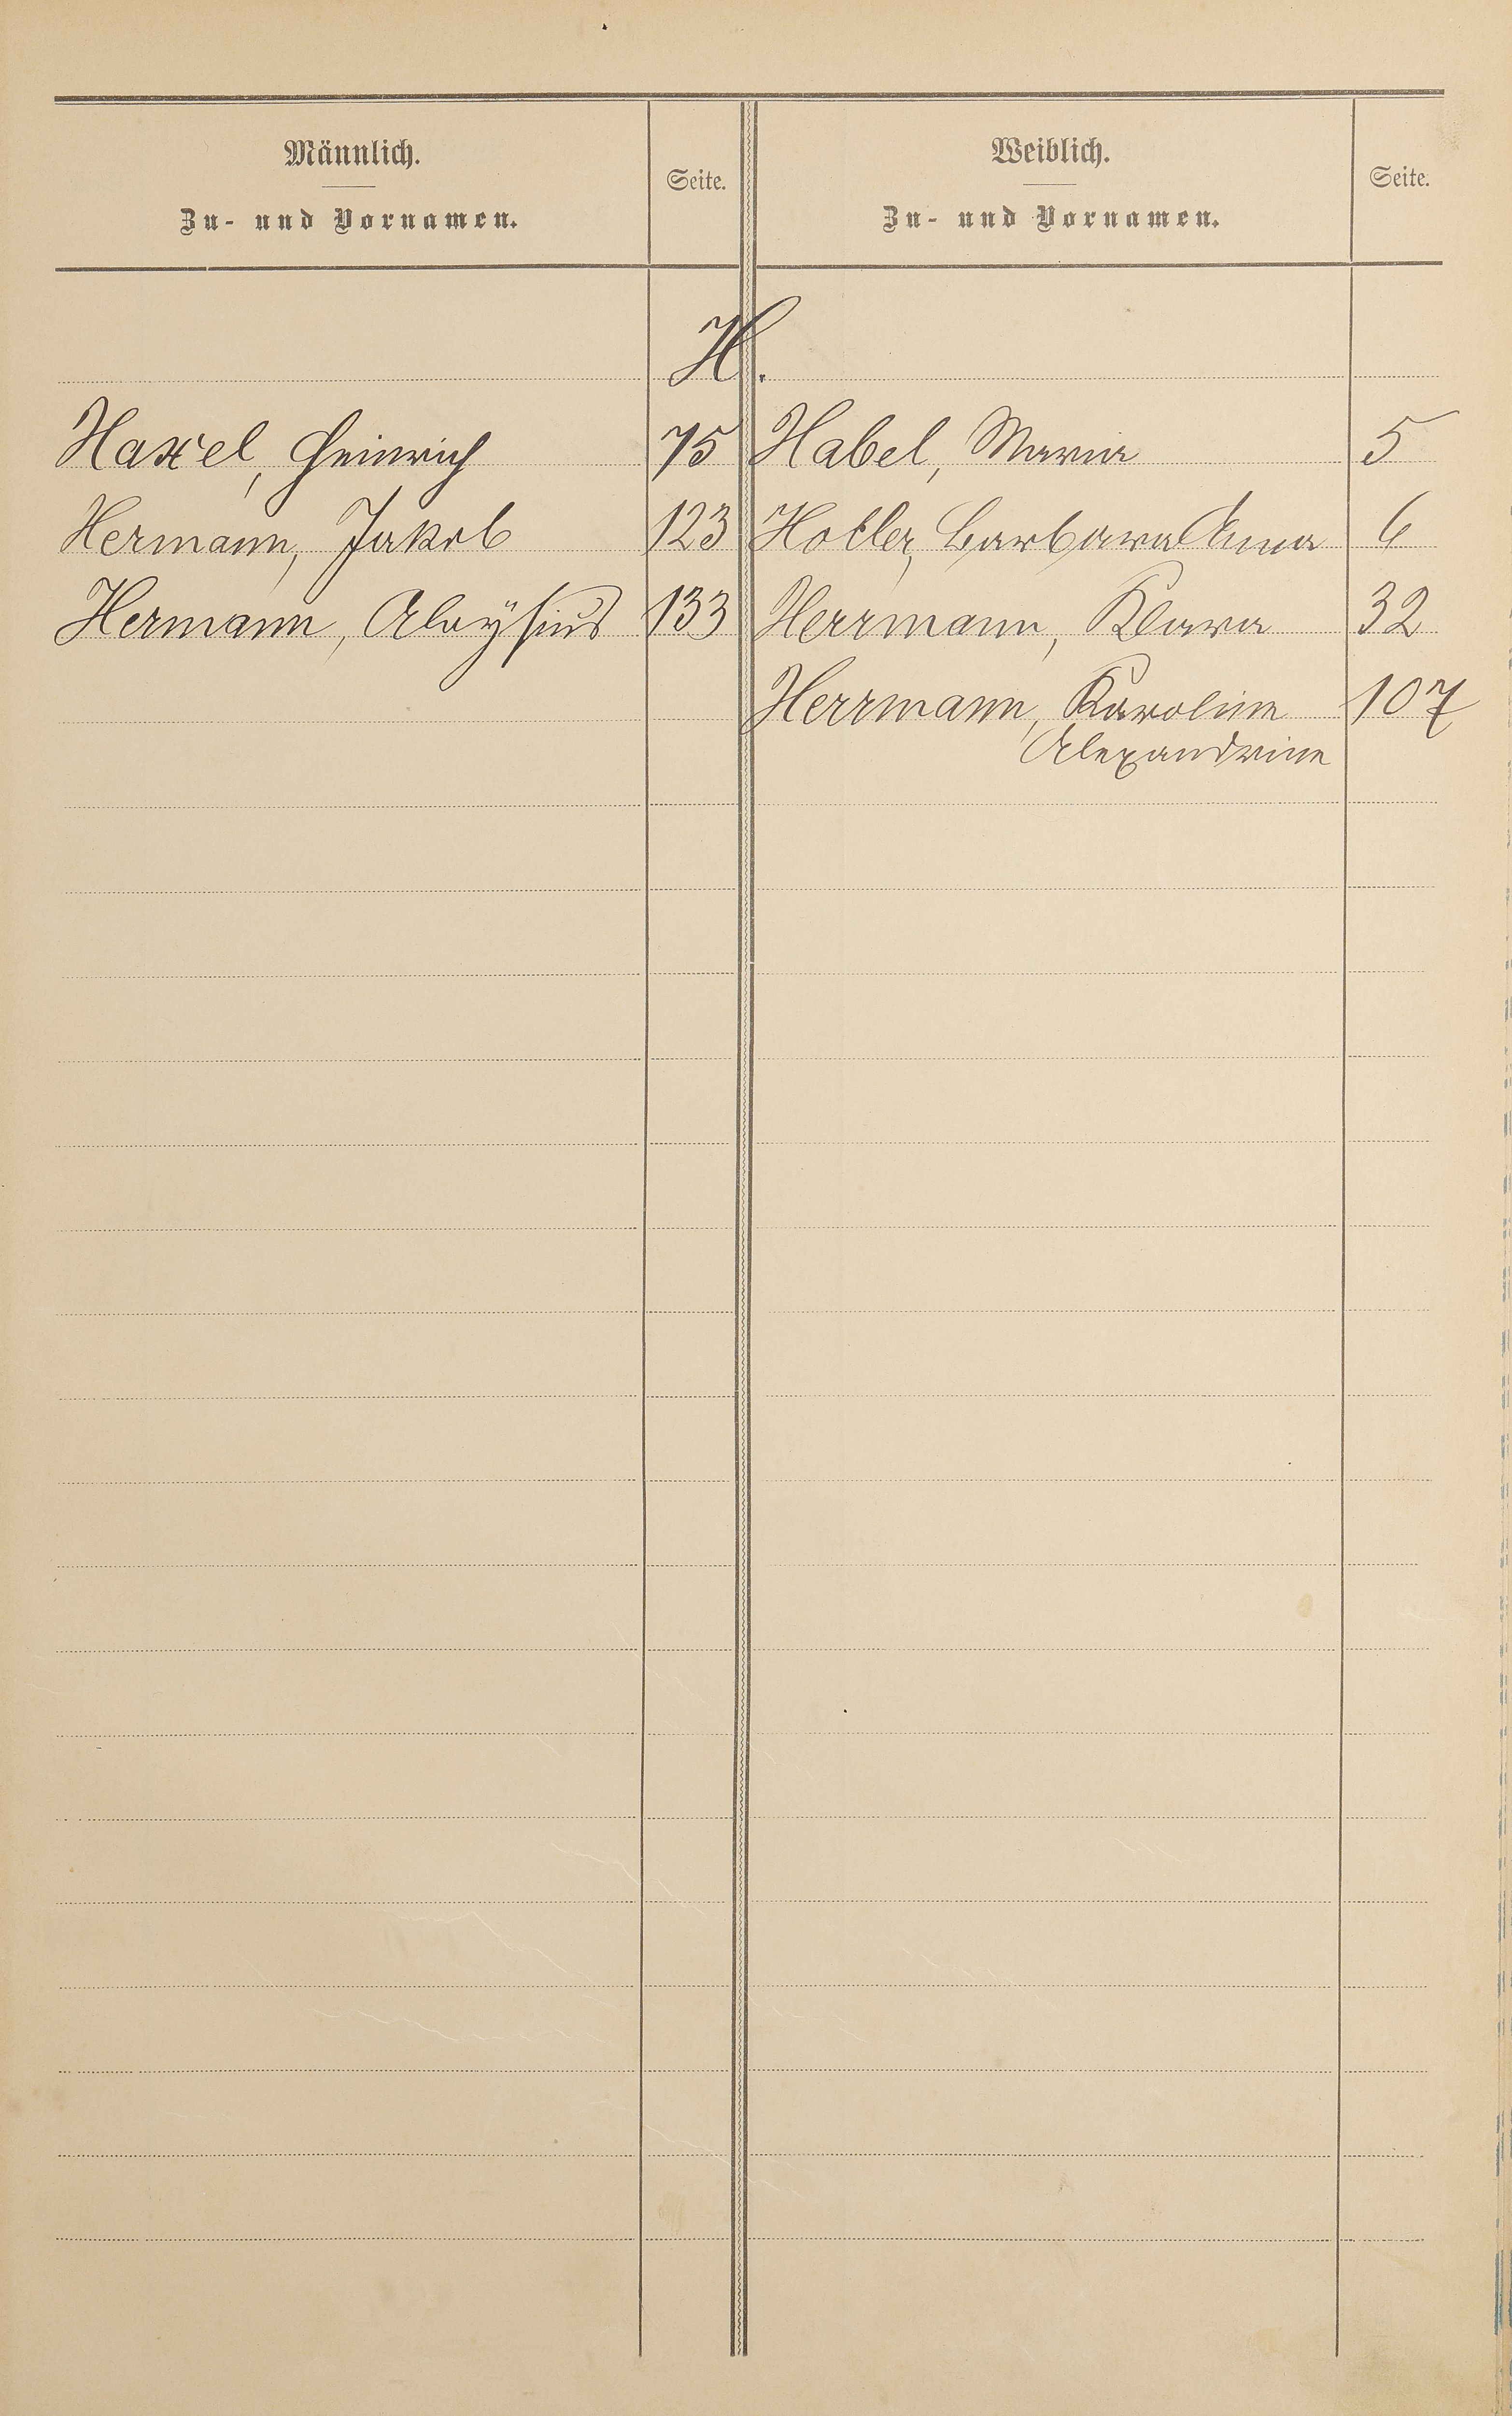 Männlich.
Zu- und Vornamen.
Seite.
Weiblich.
Zu- und Vornamen.
Seite.
H.
Haxel, Heinrich 75
Habel, Maria 5
Hermann, Jakob 123
Holler, Barbara Anna 6
Hermann, Aloÿsius 133
Herrmann, Klara 32
Herrmann, Karoline 107
Alexandrine